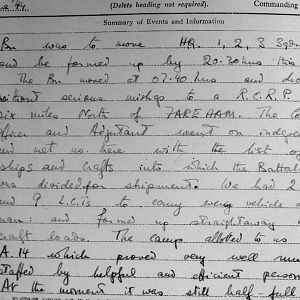 (Delete heading not required).
Commanding
Summary of Events and Information
Bn. was to move HQ. 1, 2, 3 Sqdn
and be formed up by 20.30hrs this
The Bn. moved at 07.40 hrs and
without serious mishap to a R.C.R.P.
six miles North of FAREHAM. The Co
Officer and Adjutant went on
and met us here with the list of
ships and crafts into which the Battal
was divided for shipment. We had 2
and 9 L.C.Ts to carry every vehicle a
man: and formed up straightaway
craft loads. The camp allotted to us
A.14 which proved very well run
staffed by helpful and efficient person
At the moment it was still half-full